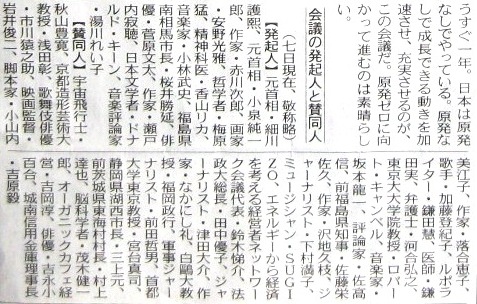 うすぐ一年。日本は原発
なしでやっている。原発な
しで成長できる動きを加
速させ、充実させるのが、
この会議だ。原発ゼロに向
かって進むのは素晴らし
い。
会議の発起人と賛同人
(七日現在、敬称略)
【発起人】元首相・細川
護熙、元首相・小泉純一
郎、作家・赤川次郎、画家
・安野光雅、哲学者・梅原
猛、精神科医・香山リカ、
音楽家・小林武史、福島県
南相馬市長・桜井勝延、俳
優・菅原文太、作家・瀬戸
内寂聴、日本文学者・ドナ
ルド・キーン、音楽評論家
・湯川れい子
【賛同人】宇宙飛行士・
秋山豊寛、京都造形芸術大
教授・浅田彰、歌舞伎俳優
・市川猿之助、映画監督・
岩井俊二、脚本家・小山内
美江子、作家・落合恵子、
歌手・加藤登紀子、ルポラ
イター・鎌田慧、医師・鎌
田実、弁護士・河合弘之、
東京大大学院教授・ロバー
ト・キャンベル、音楽家・
坂本龍一、評論家・佐高
信、前福島県知事・佐藤栄
佐久、作家・沢地久枝、ジ
ャーナリスト・下村満子、
ミュージシャン・SUGI
ZO、エネルギーから経済
を考える経営者ネットワー
ク会議代表・鈴木悌介、法
政大総長・田中優子、ジャ
ーナリスト・津田大介、作
家・なかにし礼、白鴎大教
授・福岡政行、軍事ジャー
ナリスト・前田哲男、首都
大学東京教授・宮台真司、
静岡県湖西市長・三上元、
前茨城県東海村村長・村上
達也、脳科学者・茂木健一
郎、オーガニックカフェ経
営・吉岡淳、俳優・吉永小
百合、城南信用金庫理事長
・吉原毅